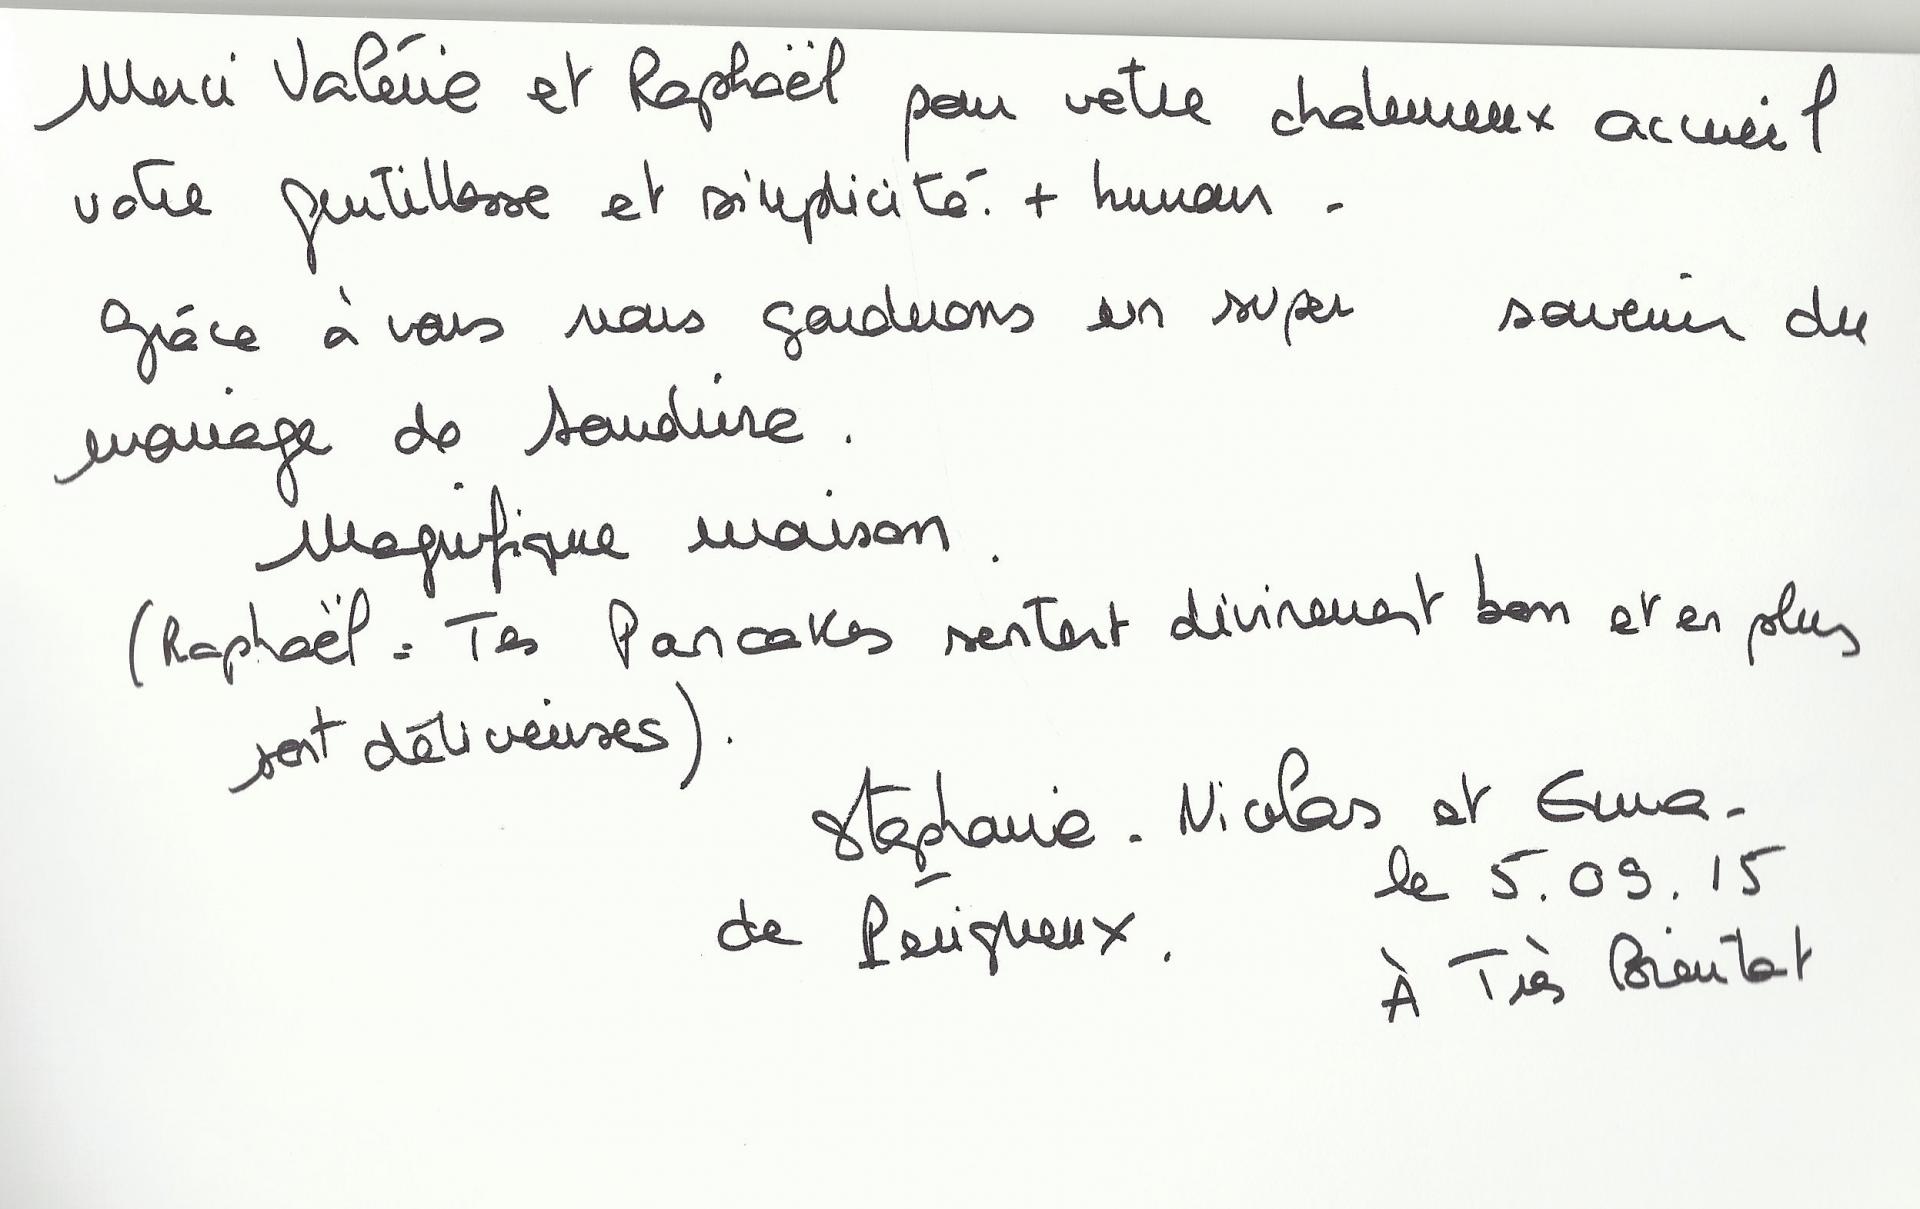 Merci Valérie et Raphaël pour votre chaleureux accueil
votre gentillesse et simplicité. + humour.
Grâce à vous nous garderons un super souvenir du
mariage de Sandrine.
Magnifique maison.
(Raphaël : Tes Pancakes sentent divinement bon et en plus
sont délicieuses).
Stéphanie. Nicolas et Emma.
de Périgueux.
le 5.09.15
À Très Bientot